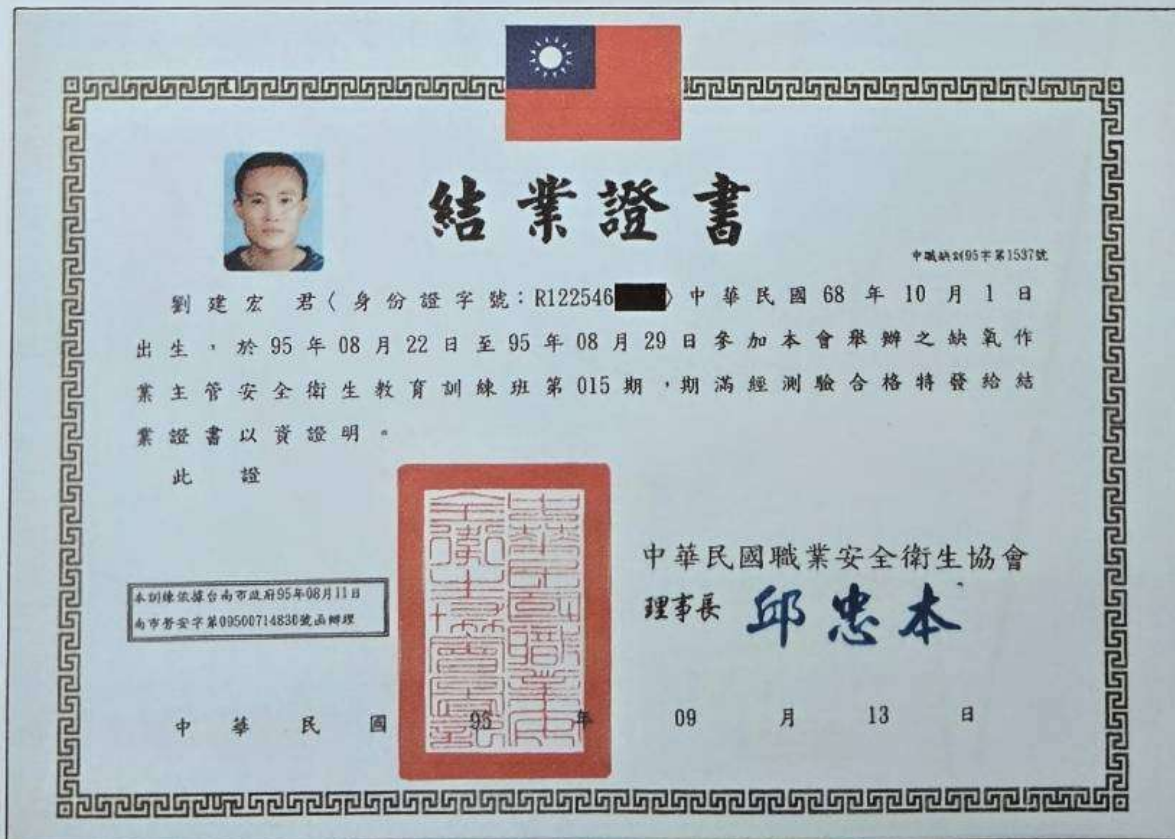 結業證書
中職缺訓95字第1537號
劉建宏 君〈身份證字號：R122546 〉中華民國 68 年 10 月 1 日
出生，於 95 年 08 月 22 日至 95 年 08 月 29 日參加本會舉辦之缺氧作
業主管安全衛生教育訓練班第 015 期，期滿經測驗合格特發給結
業證書以資證明。
此 證
中華民國職業安全衛生協會
理事長 邱忠本
本訓練依據台南市政府95年08月11日
南市勞安字第09500714830號函辦理
中華民國職業安全衛生協會圖記
中 華 民 國 95 年 09 月 13 日